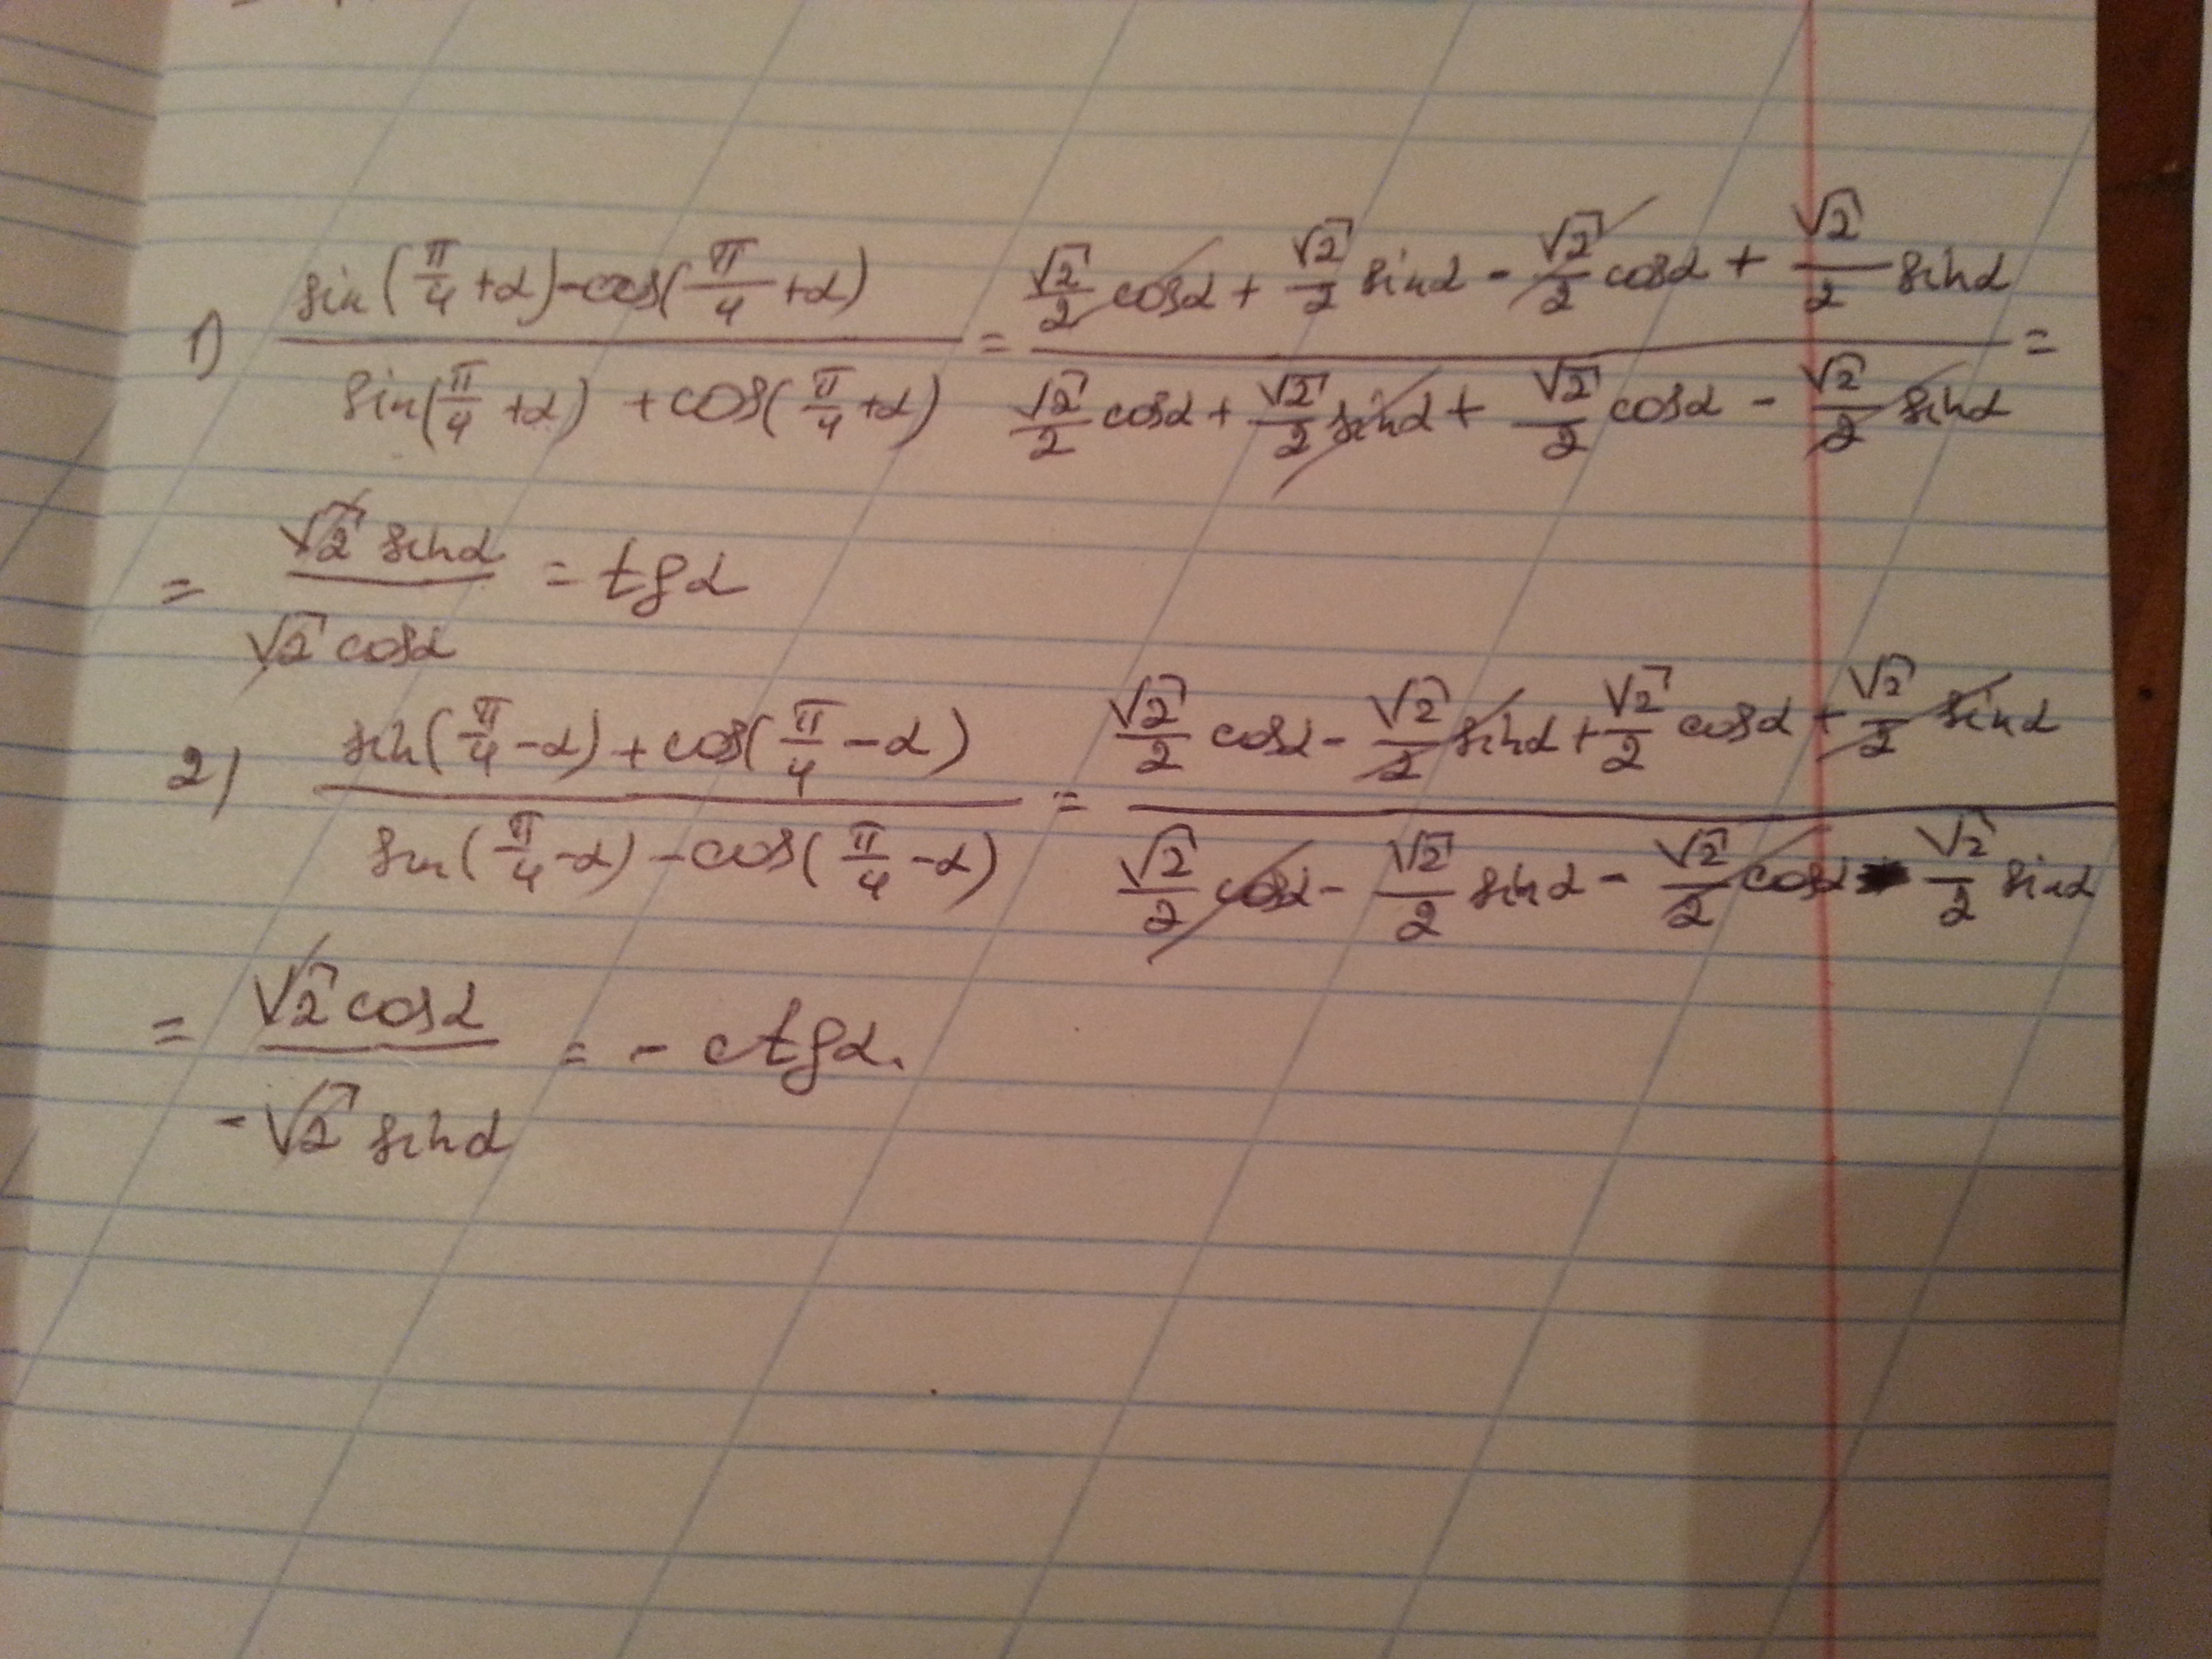 1) (sin(π/4 + α) - cos(π/4 + α)) / (sin(π/4 + α) + cos(π/4 + α)) = (√2/2 cosα + √2/2 sinα - √2/2 cosα + √2/2 sinα) / (√2/2 cosα + √2/2 sinα + √2/2 cosα - √2/2 sinα) =
= (√2 sinα) / (√2 cosα) = tgα
2) (sin(π/4 - α) + cos(π/4 - α)) / (sin(π/4 - α) - cos(π/4 - α)) = (√2/2 cosα - √2/2 sinα + √2/2 cosα + √2/2 sinα) / (√2/2 cosα - √2/2 sinα - √2/2 cosα - √2/2 sinα)
= (√2 cosα) / (-√2 sinα) = - ctgα.